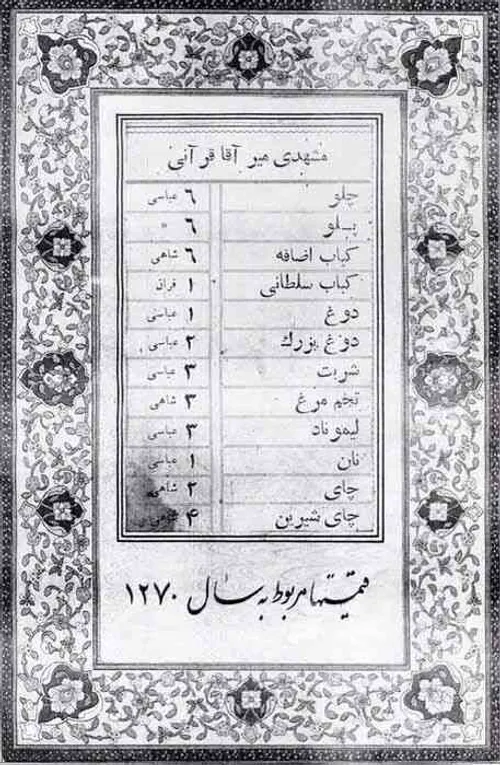 مشهدی میر آقا قرآنی
چلو ٦ عباسی
پلو ٦ "
کباب اضافه ٦ شاهی
کباب سلطانی ١ قران
دوغ ١ عباسی
دوغ بزرك ٢ عباسی
شربت ٣ عباسی
تخم مرغ ٣ شاهی
لیموناد ٣ عباسی
نان ١ عباسی
چای ٢ شاهی
چای شیرین ۴ شاهی
قیمتها مربوط به سال ١٢٧٠